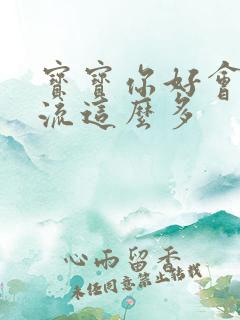 寶寶你好會
流這麼多
心雨留香
未经同意禁止转载